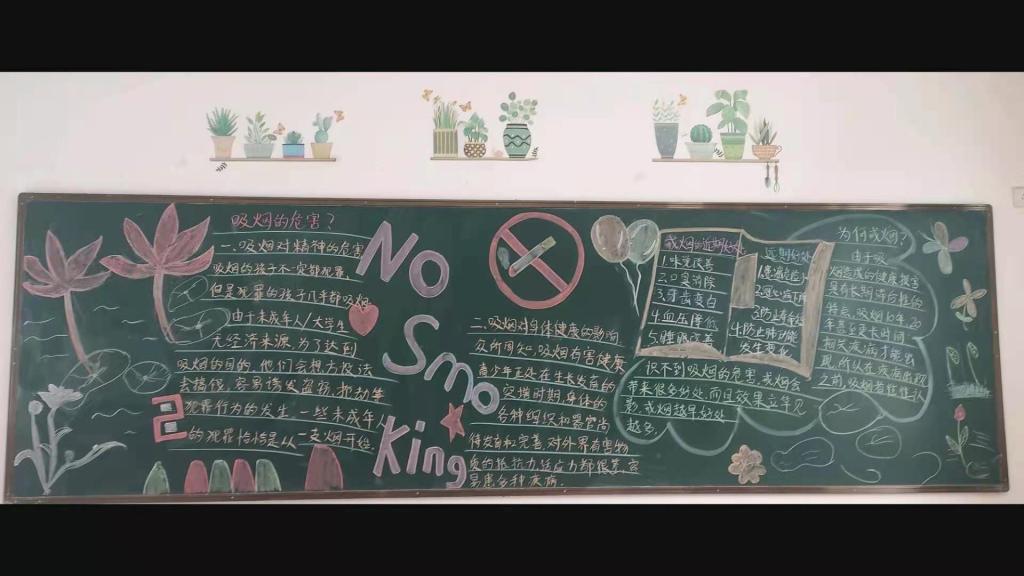 吸烟的危害？
一、吸烟对精神的危害
吸烟的孩子不一定都犯罪
但是犯罪的孩子几乎都吸烟
由于未成年人/大学生
无经济来源,为了达到
吸烟的目的,他们会想方设法
去搞钱,容易诱发盗窃,抢劫等
犯罪行为的发生,一些未成年人
的犯罪恰恰是从一支烟开始.
No
Smo
King
二、吸烟对身体健康的影响
众所周知,吸烟有害健康
青少年正处在生长发育的
关键时期,身体的
各种组织和器官尚
待发育和完善,对外界有害物
质的抵抗力,适应力都很差,容
易患各种疾病.
戒烟的近期好处
1.味觉改善
2.口臭消除
3.牙齿变白
4.血压降低
5.睡眠改善
远期好处
发生
识不到吸烟的危害,戒烟会
带来很多好处,而且效果立竿见
影,戒烟越早好处
越多.
为何戒烟？
由于吸
烟造成的健康损害
具有长期滞后性的
特点,吸烟10年20
年甚至更长时间
相关疾病才能出
现,所以在疾病出现
之前,吸烟者往往认